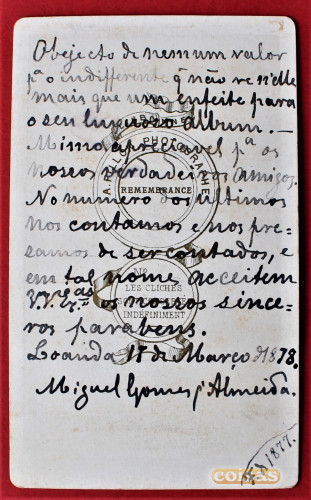 Obejecto de nemum valor
pª o indifferente q̃ não ve n'elle
mais que um enfeite para
o seu luxuozo album. —
Mimo apreciavel pª os
nossos verdadeiros amigos.
No numero dos ultimos
nos contamos e nos pre-
samos de ser contados, e
em tal nome acceitem
V.V. Exªˢ os nossos since-
ros parabens.
Loanda 17 de Março d 1878.
Miguel Gomes d'Almeida.
PHOTOGRAPHE
REMEMBRANCE
LES CLICHÉS
INDÉFINIMENT
1877.
coisas